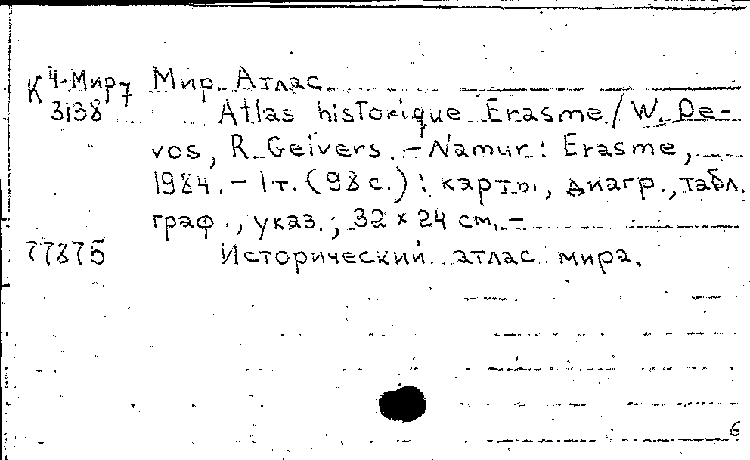 К 4-Мир7 Мир. Атлас.
3138 Atlas historique Erasme / W. De-
vos, R. Geivers. - Namur: Erasme,
1984. - 1т. (98 с.) : карты, диагр., табл.
граф., указ.; 32 x 24 см. -
77875 Исторический атлас мира.
6